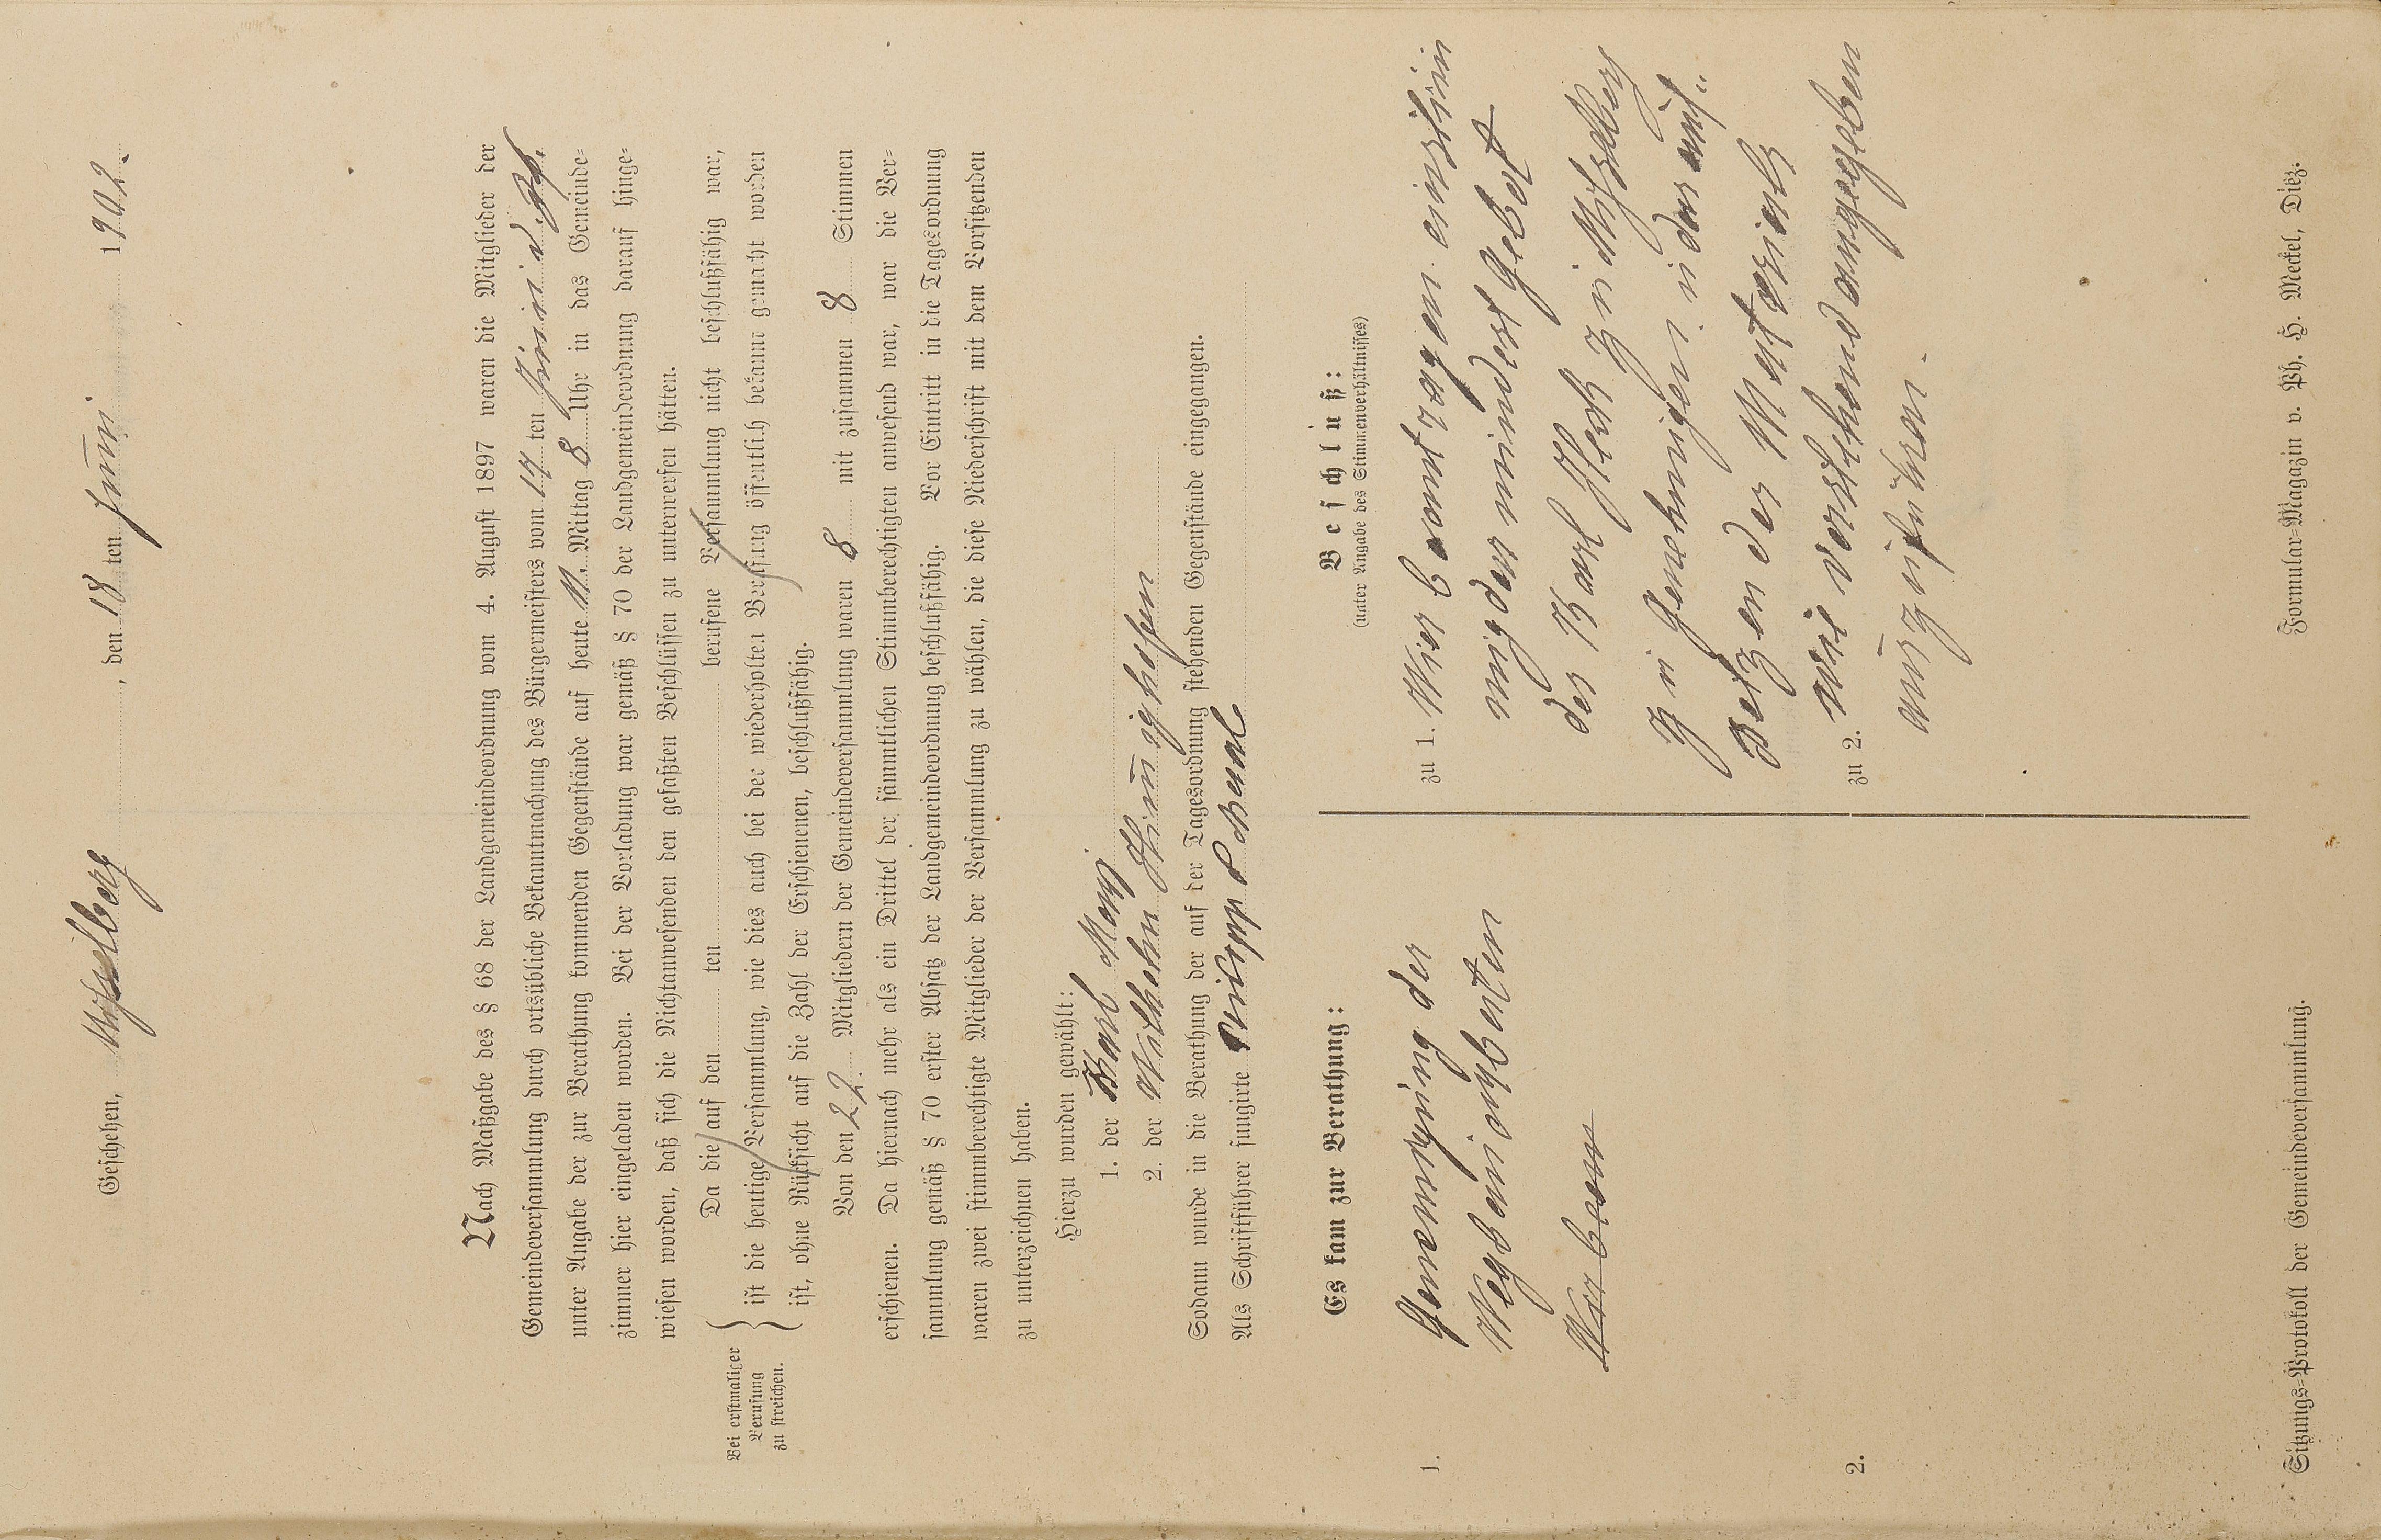 Geschehen, Misselberg, den 18 ten Juni 1902.
Nach Maßgabe des § 68 der Landgemeindeordnung vom 4. August 1897 waren die Mitglieder der
Gemeindeversammlung durch ortsübliche Bekanntmachung des Bürgermeisters vom 17 ten Juni d. Js.
unter Angabe der zur Berathung kommenden Gegenstände auf heute N. Mittag 8 Uhr in das Gemeinde-
zimmer hier eingeladen worden. Bei der Vorladung war gemäß § 70 der Landgemeindeordnung darauf hinge-
wiesen worden, daß sich die Nichtanwesenden den gefaßten Beschlüssen zu unterwerfen hätten.
Bei erstmaliger
Berufung
zu streichen.
Da die auf den ten berufene Versammlung nicht beschlußfähig war,
ist die heutige Versammlung, wie dies auch bei der wiederholten Berufung öffentlich bekannt gemacht worden
ist, ohne Rücksicht auf die Zahl der Erschienenen, beschlußfähig.
Von den 22. Mitgliedern der Gemeindeversammlung waren 8 mit zusammen 8 Stimmen
erschienen. Da hiernach mehr als ein Drittel der sämmtlichen Stimmberechtigten anwesend war, war die Ver-
sammlung gemäß § 70 erster Absatz der Landgemeindeordnung beschlußfähig. Vor Eintritt in die Tagesordnung
waren zwei stimmberechtigte Mitglieder der Versammlung zu wählen, die diese Niederschrift mit dem Vorsitzenden
zu unterzeichnen haben.
Hierzu wurden gewählt:
1. der Karl
2. der Wilhelm
Sodann wurde in die Berathung der auf der Tagesordnung stehenden Gegenstände eingegangen.
Als Schriftführer fungirte Philipp
Es kam zur Berathung:
1. Genemigung der
Wegbauarbeiten
Wir bean
2.
Beschluß:
(unter Angabe des Stimmenverhältnisses)
zu 1. Wir beantragen einstim
mig der mindest Gebot
des Karl zu Misselberg
zu genehmigen u das auf"
setzen des Materials
zu 2. wie vorstehend angegeben
auszuführen.
Sitzungs-Protokoll der Gemeindeversammlung.
Formular-Magazin v. Ph. H. Meckel, Diez.